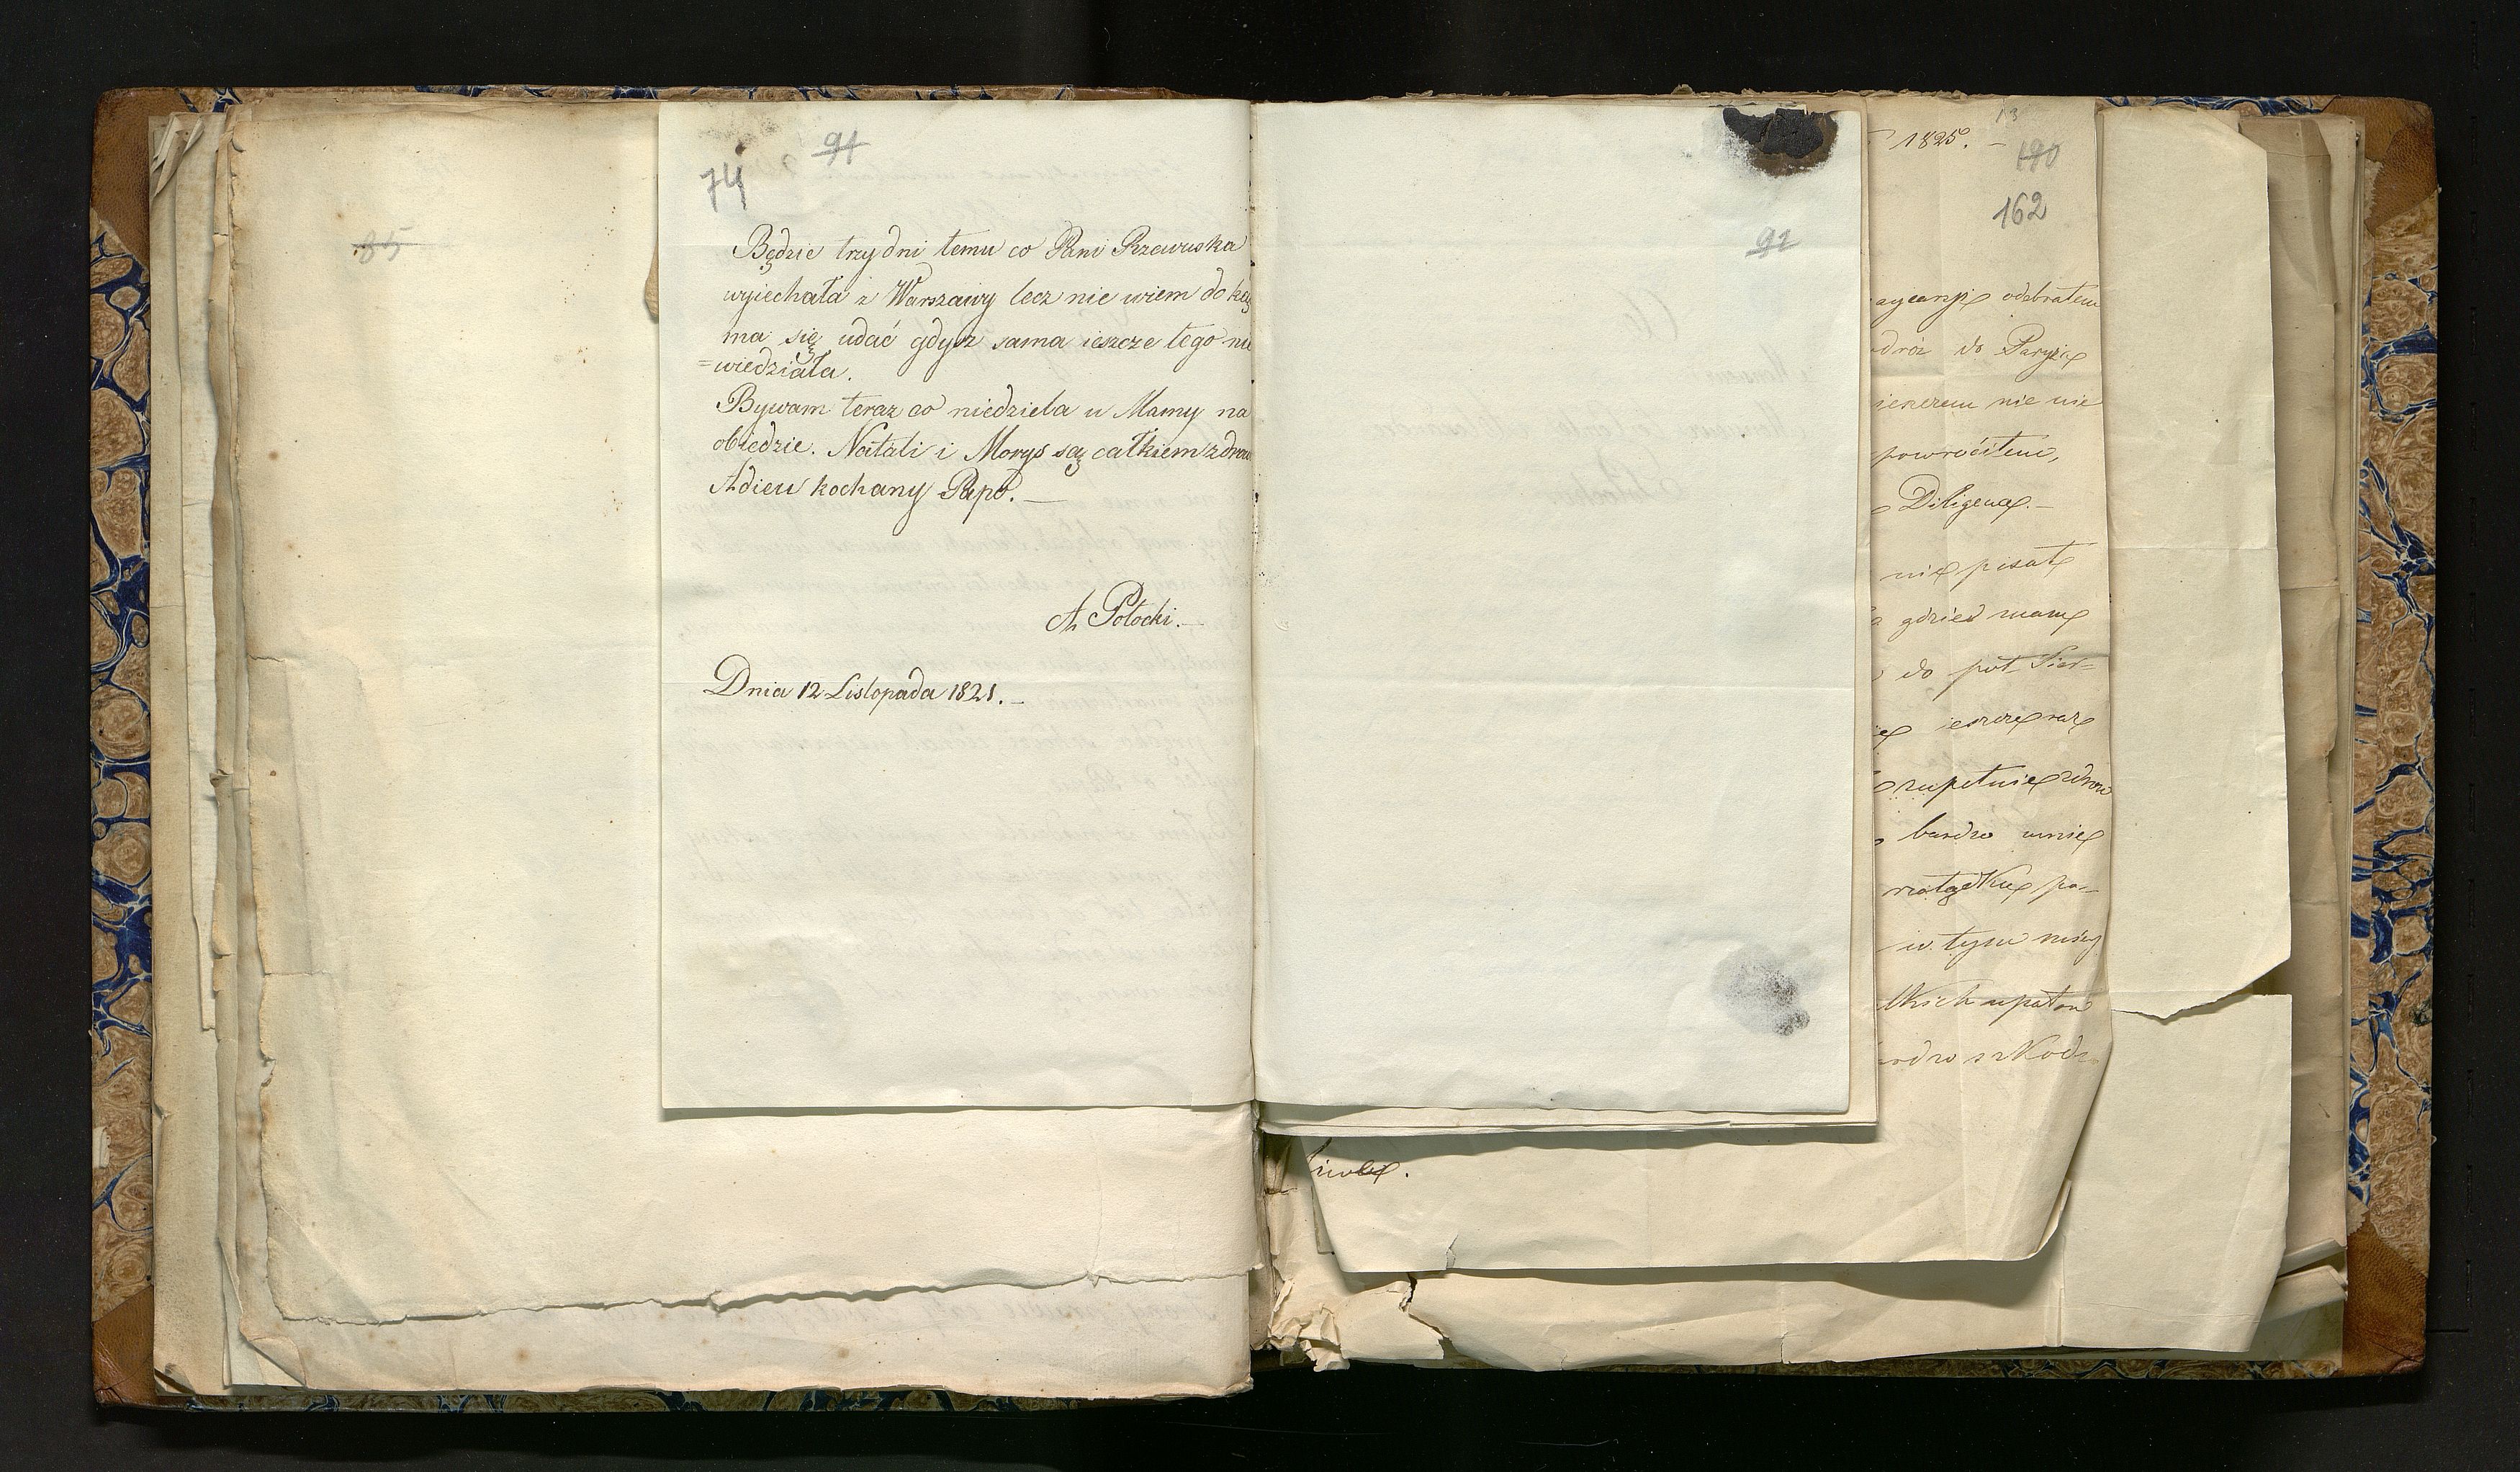 85
91
74
Będzie trzy dni temu co Pani Rzewuska
wyiechała z Warszawy lecz nie wiem do kąd
ma się udać gdyż sama ieszcze tego nie
=wiedziała.
Bywam teraz co niedziela u Mamy na
obiedzie. Natali i Morys są całkiem zdrowi
Adieu kochany Papo.—
A Potocki.—
Dnia 12 Listopada 1821.—
92
13
1825. —
190
162
odebrałem
do Paryża
nie
powróciłem,
Diligence.—
nie pisać
gdzieś mamę
do pół Sier=
ieszcze raz
zupełnie zdrow
bardzo mnie
po=
w tym
upałow